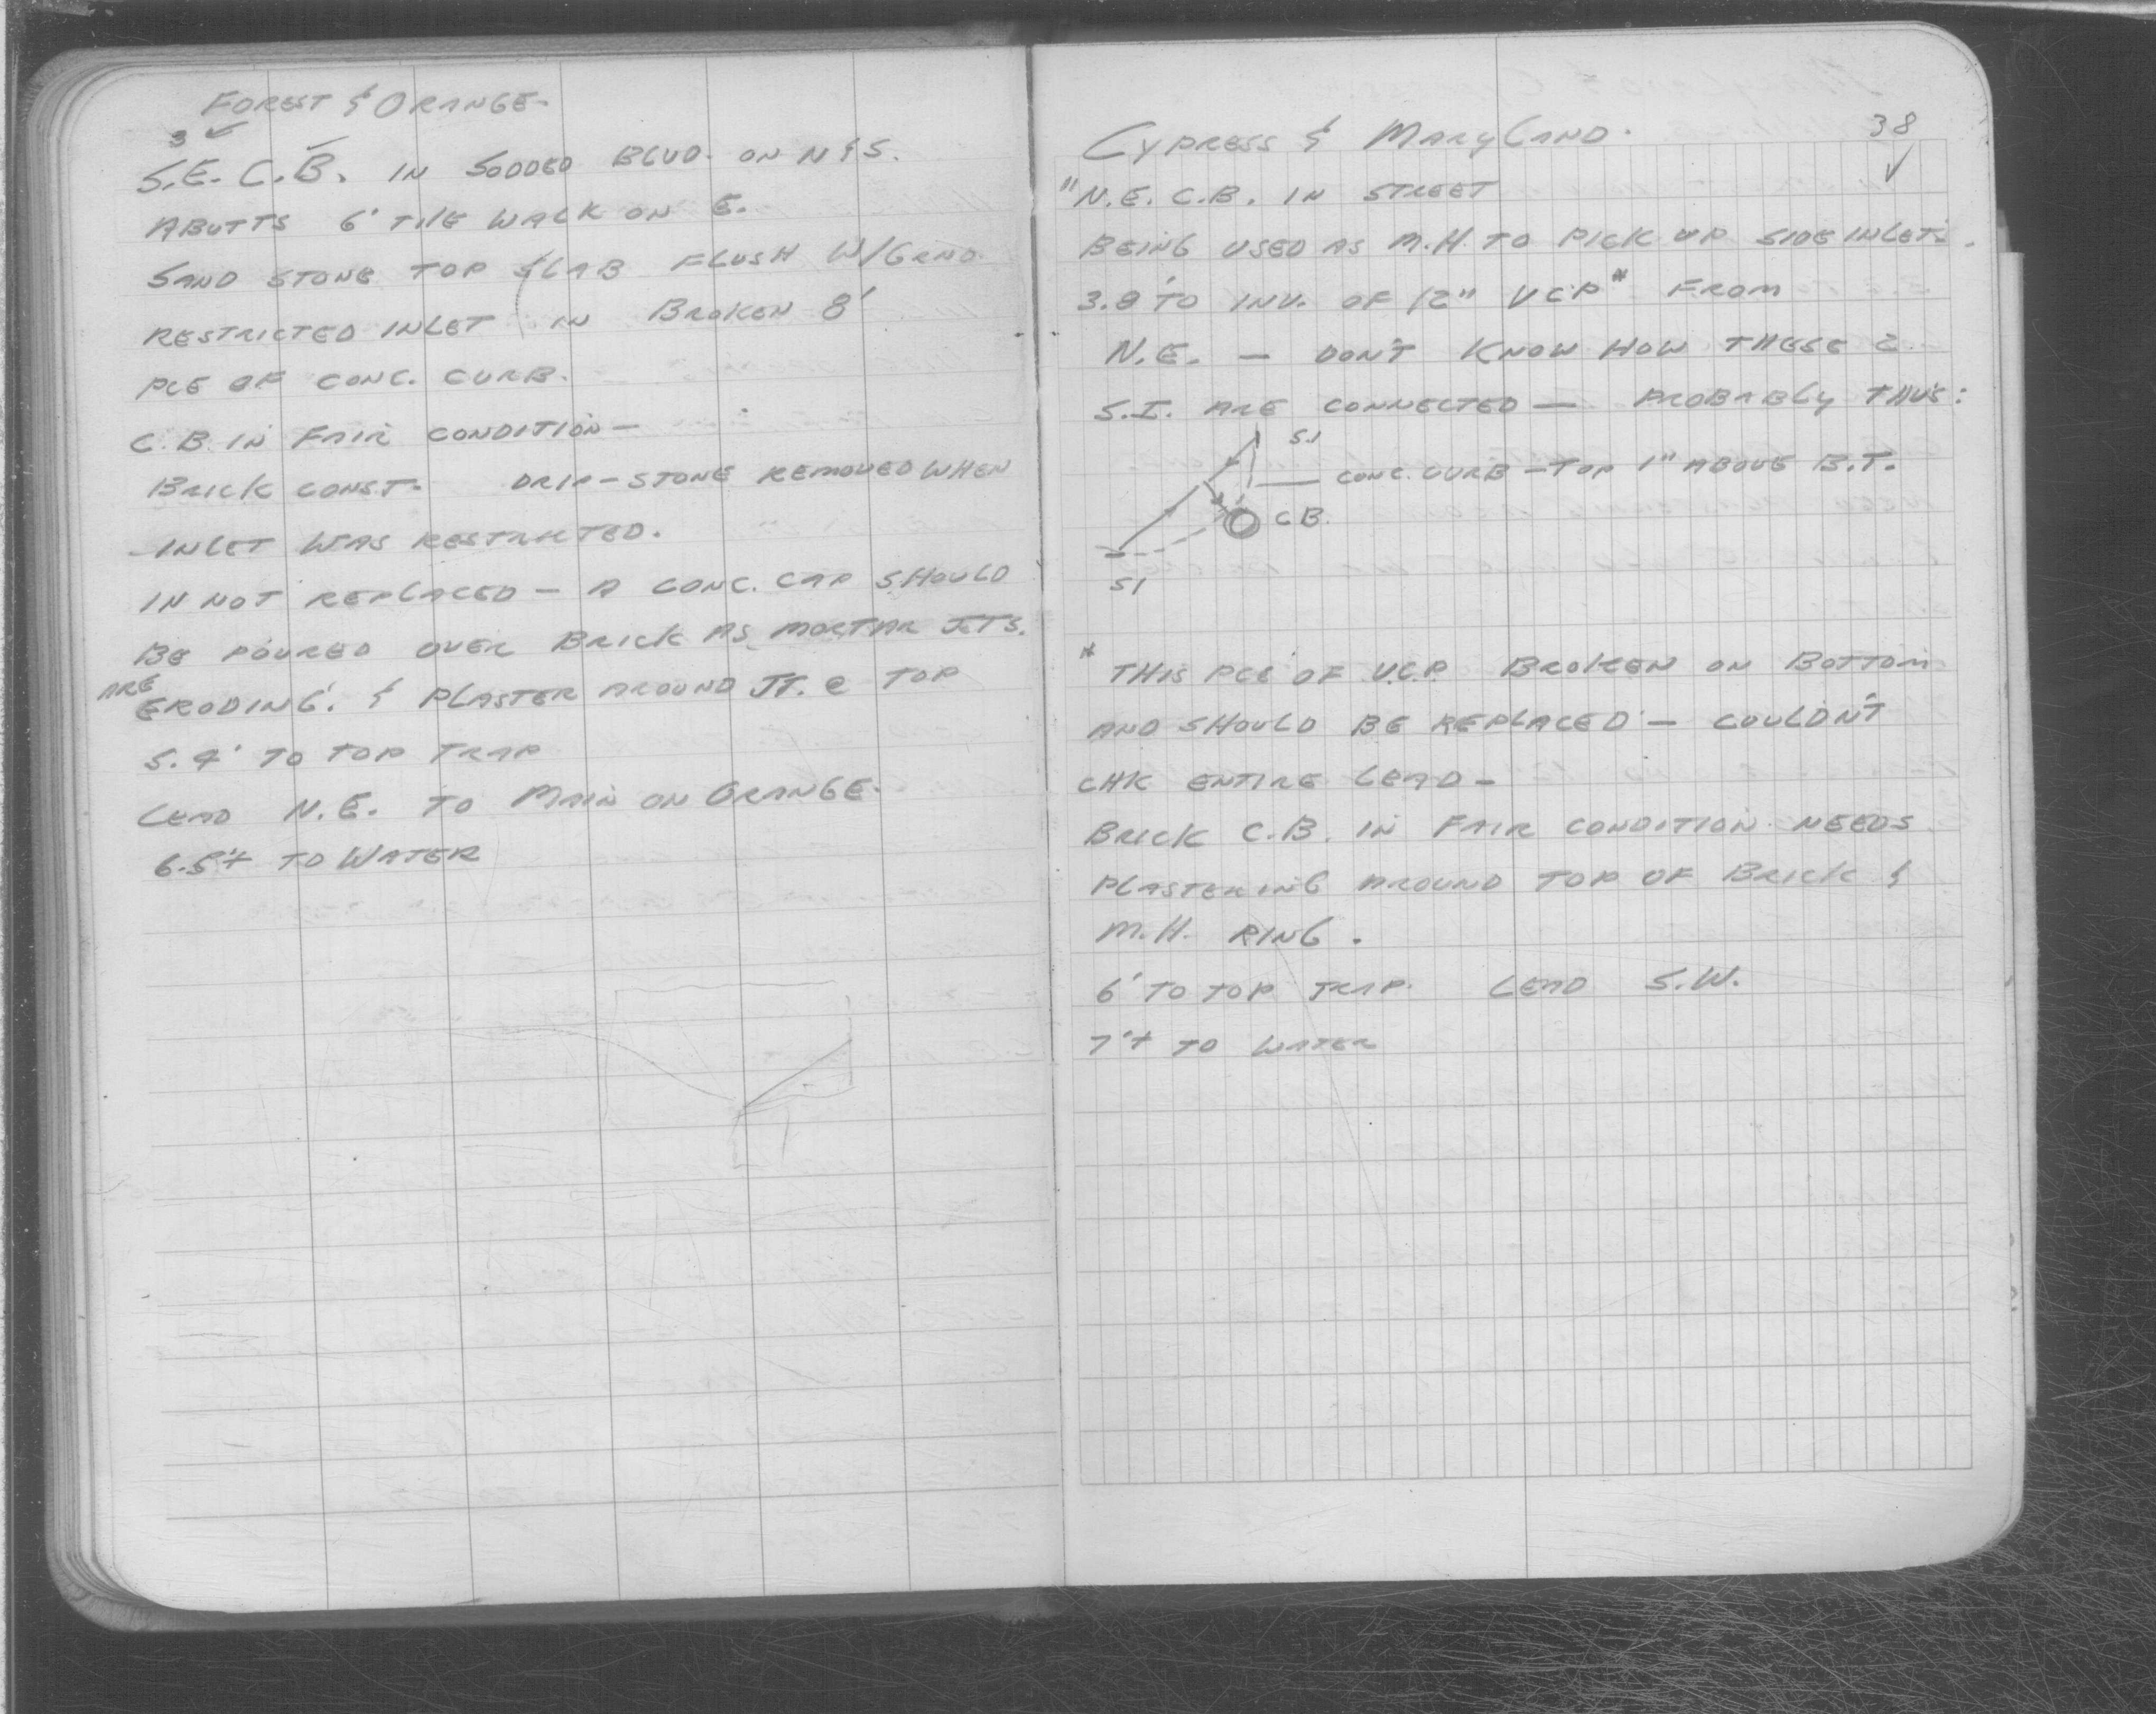 FOREST & ORANGE-
3 ✓
S.E. C.B. IN SODDED BLVD. ON N & S.
ABUTTS 6' TILE WALK ON E.
SAND STONE TOP SLAB FLUSH W/GRND.
RESTRICTED INLET IN BROKEN 8'
PCE OF CONC. CURB.
C.B. IN FAIR CONDITION-
BRICK CONST. DRIP-STONE REMOVED WHEN
INLET WAS RESTRICTED.
IN NOT REPLACED - A CONC. CAP SHOULD
BE POURED OVER BRICK AS MORTAR JTS.
ARE
ERODING. & PLASTER AROUND JT. @ TOP
5.4' TO TOP TRAP
LEAD N.E. TO MAIN ON ORANGE-
6.5'+ TO WATER
38
CYPRESS & MARYLAND.
✓
"N.E. C.B. IN STREET
BEING USED AS M.H. TO PICK UP SIDE INLETS.
3.8' TO INV. OF 12" VCP* FROM
N.E. - DON'T KNOW HOW THESE 2
S.I. ARE CONNECTED - PROBABLY THUS:
S.I
CONC. CURB - TOP 1" ABOVE B.T.
CB.
SI
* THIS PCE OF V.C.P. BROKEN ON BOTTOM
AND SHOULD BE REPLACED - COULDN'T
CHK ENTIRE LEAD -
BRICK C.B. IN FAIR CONDITION. NEEDS
PLASTERING AROUND TOP OF BRICK &
M.H. RING.
6' TO TOP TRAP. LEAD S.W.
7'+ TO WATER